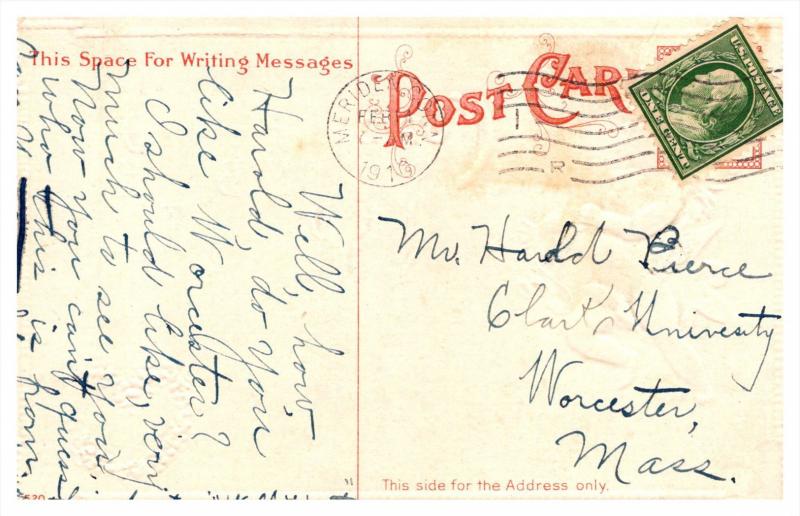 This Space For Writing Messages
POST CARD
MERIDEN, CONN.
FEB
191
U.S. POSTAGE
ONE CENT
R
Well, how,
Harold, do you
like Worcester?
I should like, very
much to see you.
Now you can't guess
who this is from,
Can U
Mr. Harold Pierce
Clark University
Worcester,
Mass.
This side for the Address only.
520